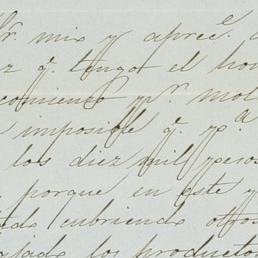 Sr. mio y aprece.
q. tengo el hon
comienso pr. mol
imposible q. pa
los diez mil pesos
porque en este y
cubriendo otros
los productos